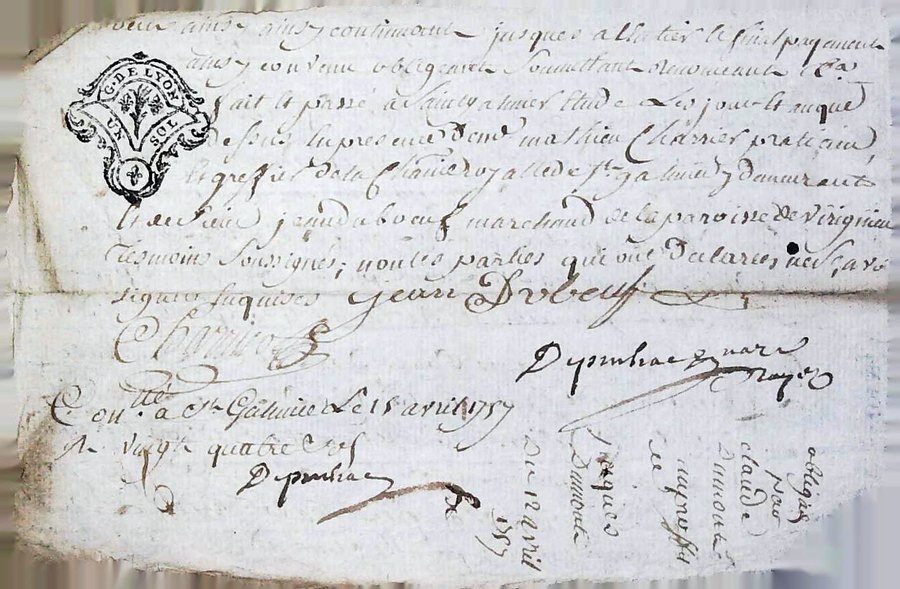 ainsy continuront jusques a l'antier et final payement
ainsy convenu obligeant soumettant renonceant &ca
G. DE LYON
UN SOL
fait et passé a saint galmier etude les jour et an que
dessus en presence de mre mathieu Charrier praticien
et greffier de la Chatnie royalle de st galmier y demeurant
et de sieur jean duboeuf marchand de la paroisse de virignieu
tesmoins soussignés; non les parties qui ont declarées ne sçavoir
signer enquises jean Dubeuf
Charrier
Depralhac notaire
royal
Conllé a St Galmier le 15 avril 1757
R vingt quatre sols
Depralhac
obligaon
pour
claude
Dumont
au profit
de
jacques
Dumont
Du 12 avril
1757